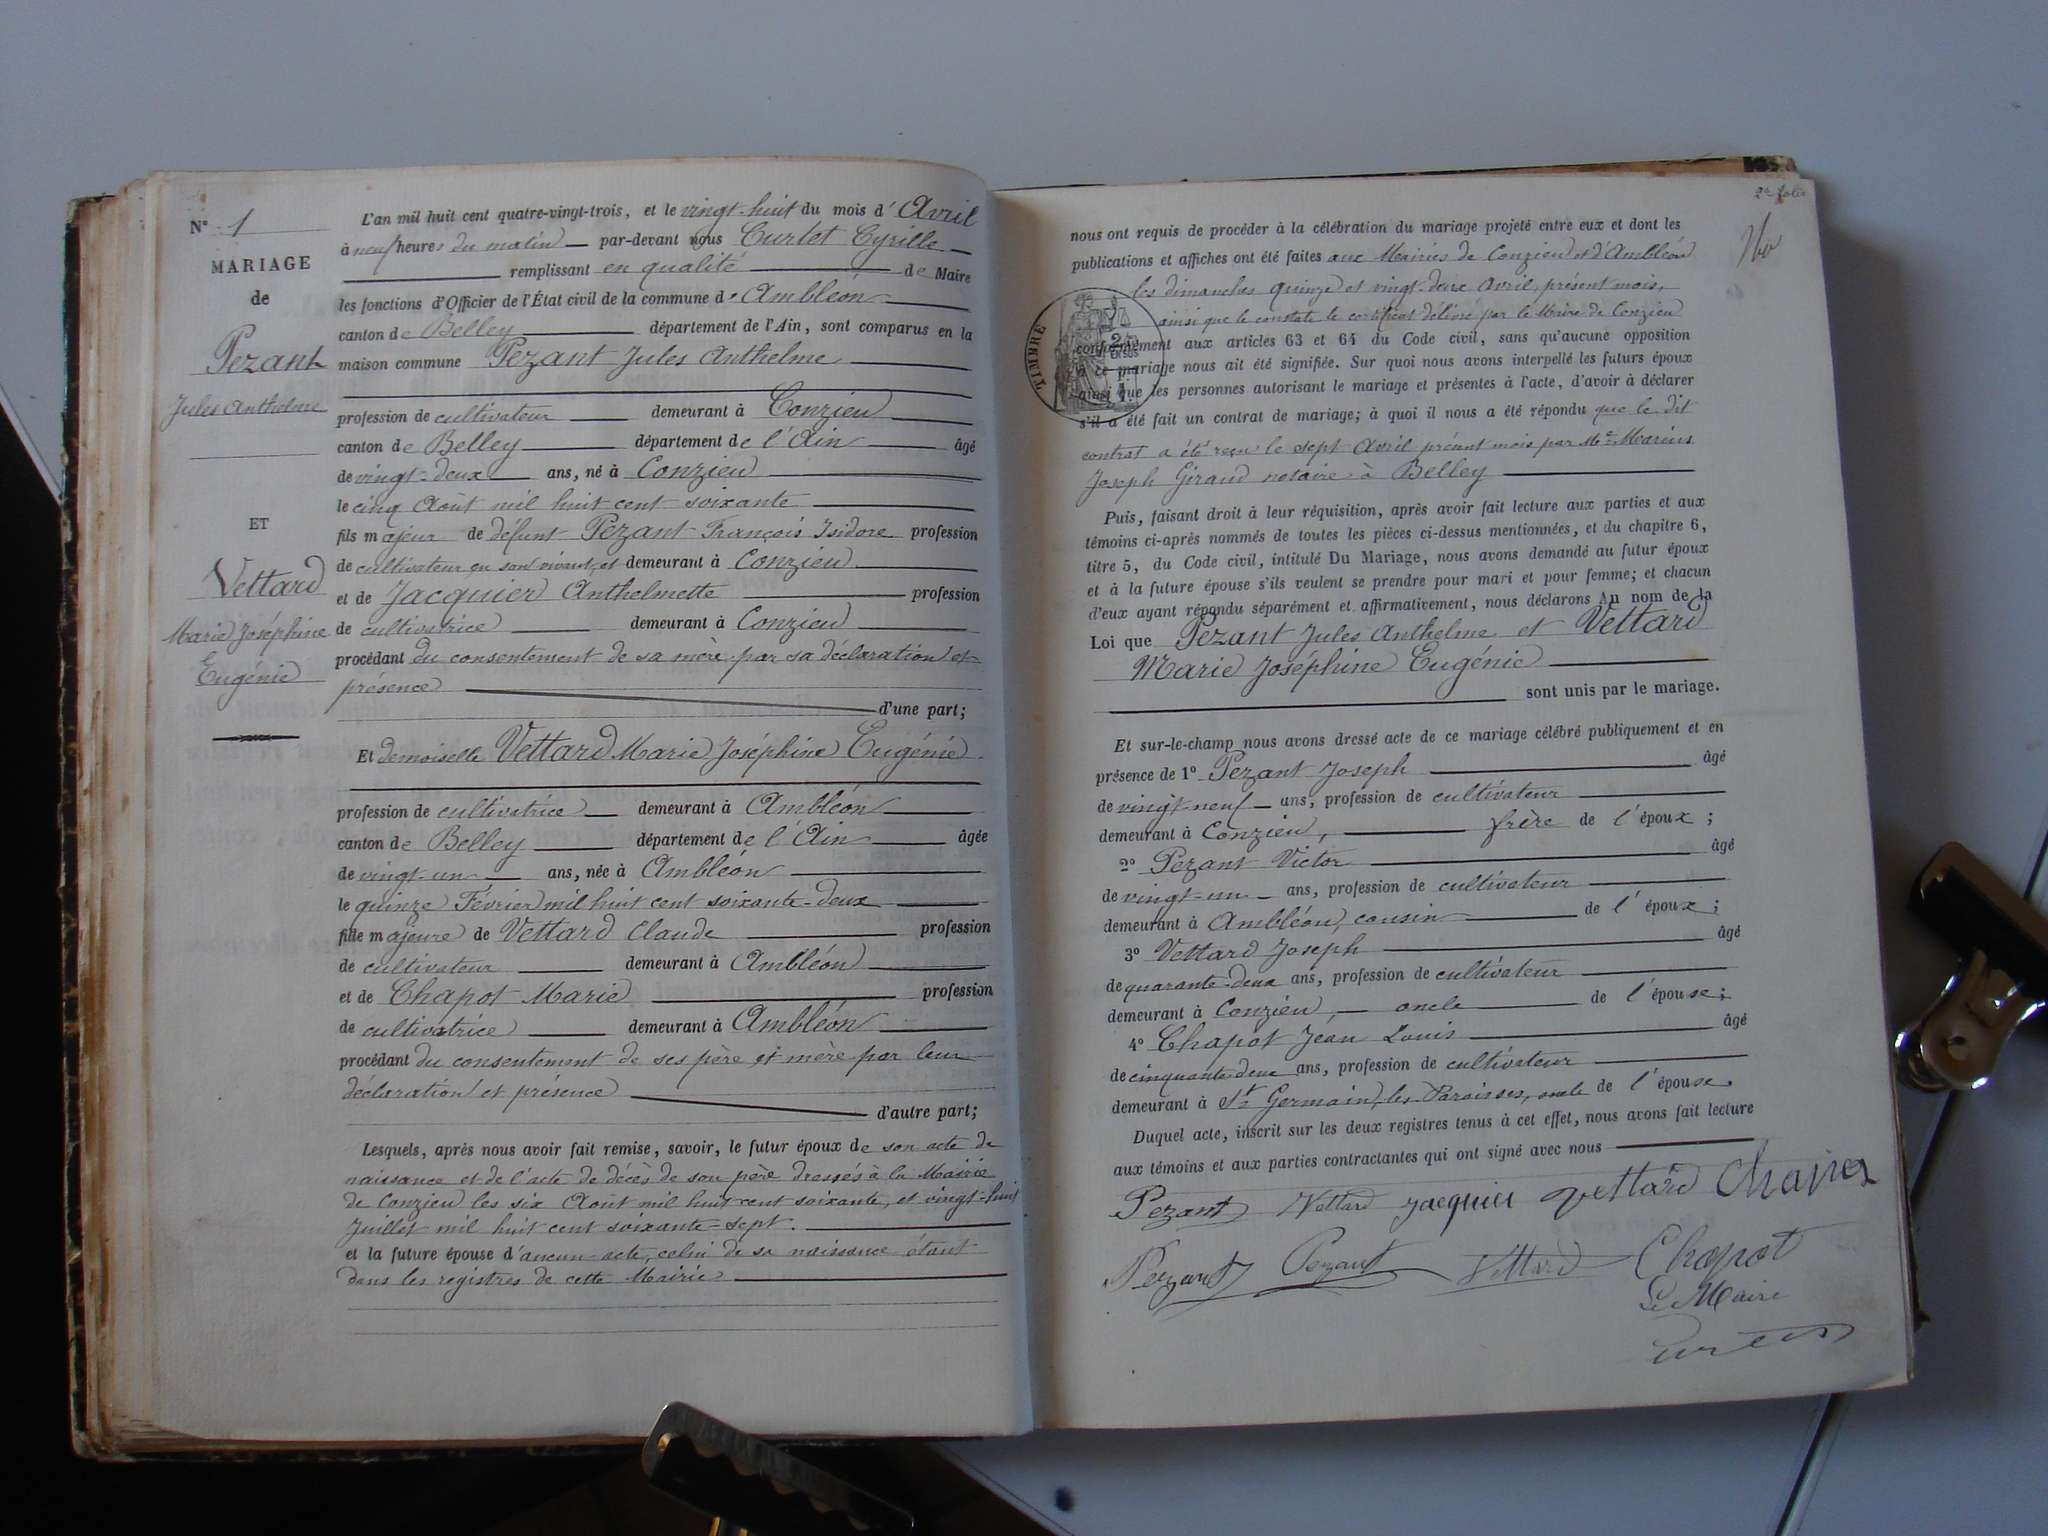 N° 1
MARIAGE
de
Pezant
Jules Anthelme
ET
Vettard
Marie Joséphine
Eugénie
L'an mil huit cent quatre-vingt-trois, et le vingt-huit du mois d'Avril
à neuf heures du matin par-devant nous Curtet Cyrille
remplissant en qualité de Maire
les fonctions d'Officier de l'État civil de la commune d'Ambléon
canton de Belley département de l'Ain, sont comparus en la
maison commune Pezant Jules Anthelme
profession de cultivateur demeurant à Conzieu
canton de Belley département de l'Ain âgé
de vingt-deux ans, né à Conzieu
le cinq Août mil huit cent soixante
fils majeur de défunt Pezant François Isidore profession
de cultivateur en son vivant, et demeurant à Conzieu
et de Jacquier Anthelmette profession
de cultivatrice demeurant à Conzieu
procédant du consentement de sa mère par sa déclaration et
présence
d'une part;
Et demoiselle Vettard Marie Joséphine Eugénie
profession de cultivatrice demeurant à Ambléon
canton de Belley département de l'Ain âgée
de vingt-un ans, née à Ambléon
le quinze Février mil huit cent soixante-deux
fille majeure de Vettard Claude profession
de cultivateur demeurant à Ambléon
et de Chapot Marie profession
de cultivatrice demeurant à Ambléon
procédant du consentement de ses père et mère par leur
déclaration et présence
d'autre part;
Lesquels, après nous avoir fait remise, savoir, le futur époux de son acte de
naissance et de l'acte de décès de son père dressés à la Mairie
de Conzieu les six Août mil huit cent soixante, et vingt-huit
Juillet mil huit cent soixante-sept.
et la future épouse d'aucun acte, celui de sa naissance étant
dans les registres de cette Mairie
2e folio
nous ont requis de procéder à la célébration du mariage projeté entre eux et dont les
publications et affiches ont été faites aux Mairies de Conzieu et d'Ambléon
les dimanches quinze et vingt-deux Avril, présent mois,
ainsi que le constate le certificat délivré par le Maire de Conzieu
TIMBRE
conformément aux articles 63 et 64 du Code civil, sans qu'aucune opposition
à ce mariage nous ait été signifiée. Sur quoi nous avons interpellé les futurs époux
ainsi que les personnes autorisant le mariage et présentes à l'acte, d'avoir à déclarer
s'il a été fait un contrat de mariage; à quoi il nous a été répondu que le dit
contrat a été reçu le sept Avril présent mois par Me Marius
Joseph Giraud notaire à Belley
Puis, faisant droit à leur réquisition, après avoir fait lecture aux parties et aux
témoins ci-après nommés de toutes les pièces ci-dessus mentionnées, et du chapitre 6,
titre 5, du Code civil, intitulé Du Mariage, nous avons demandé au futur époux
et à la future épouse s'ils veulent se prendre pour mari et pour femme; et chacun
d'eux ayant répondu séparément et affirmativement, nous déclarons Au nom de la
Loi que Pezant Jules Anthelme et Vettard
Marie Joséphine Eugénie
sont unis par le mariage.
Et sur-le-champ nous avons dressé acte de ce mariage célébré publiquement et en
présence de 1° Pezant Joseph âgé
de vingt-neuf ans, profession de cultivateur
demeurant à Conzieu, frère de l'époux;
2° Pezant Victor âgé
de vingt-un ans, profession de cultivateur
demeurant à Ambléon, cousin de l'époux;
3° Vettard Joseph âgé
de quarante-deux ans, profession de cultivateur
demeurant à Conzieu, oncle de l'épouse;
4° Chapot Jean Louis âgé
de cinquante-deux ans, profession de cultivateur
demeurant à St Germain, les Paroisses, oncle de l'épouse.
Duquel acte, inscrit sur les deux registres tenus à cet effet, nous avons fait lecture
aux témoins et aux parties contractantes qui ont signé avec nous
Pezant Vettard Jacquier Vettard Chapot
Pezant Pezant Vettard Chapot
Le Maire
Curtet